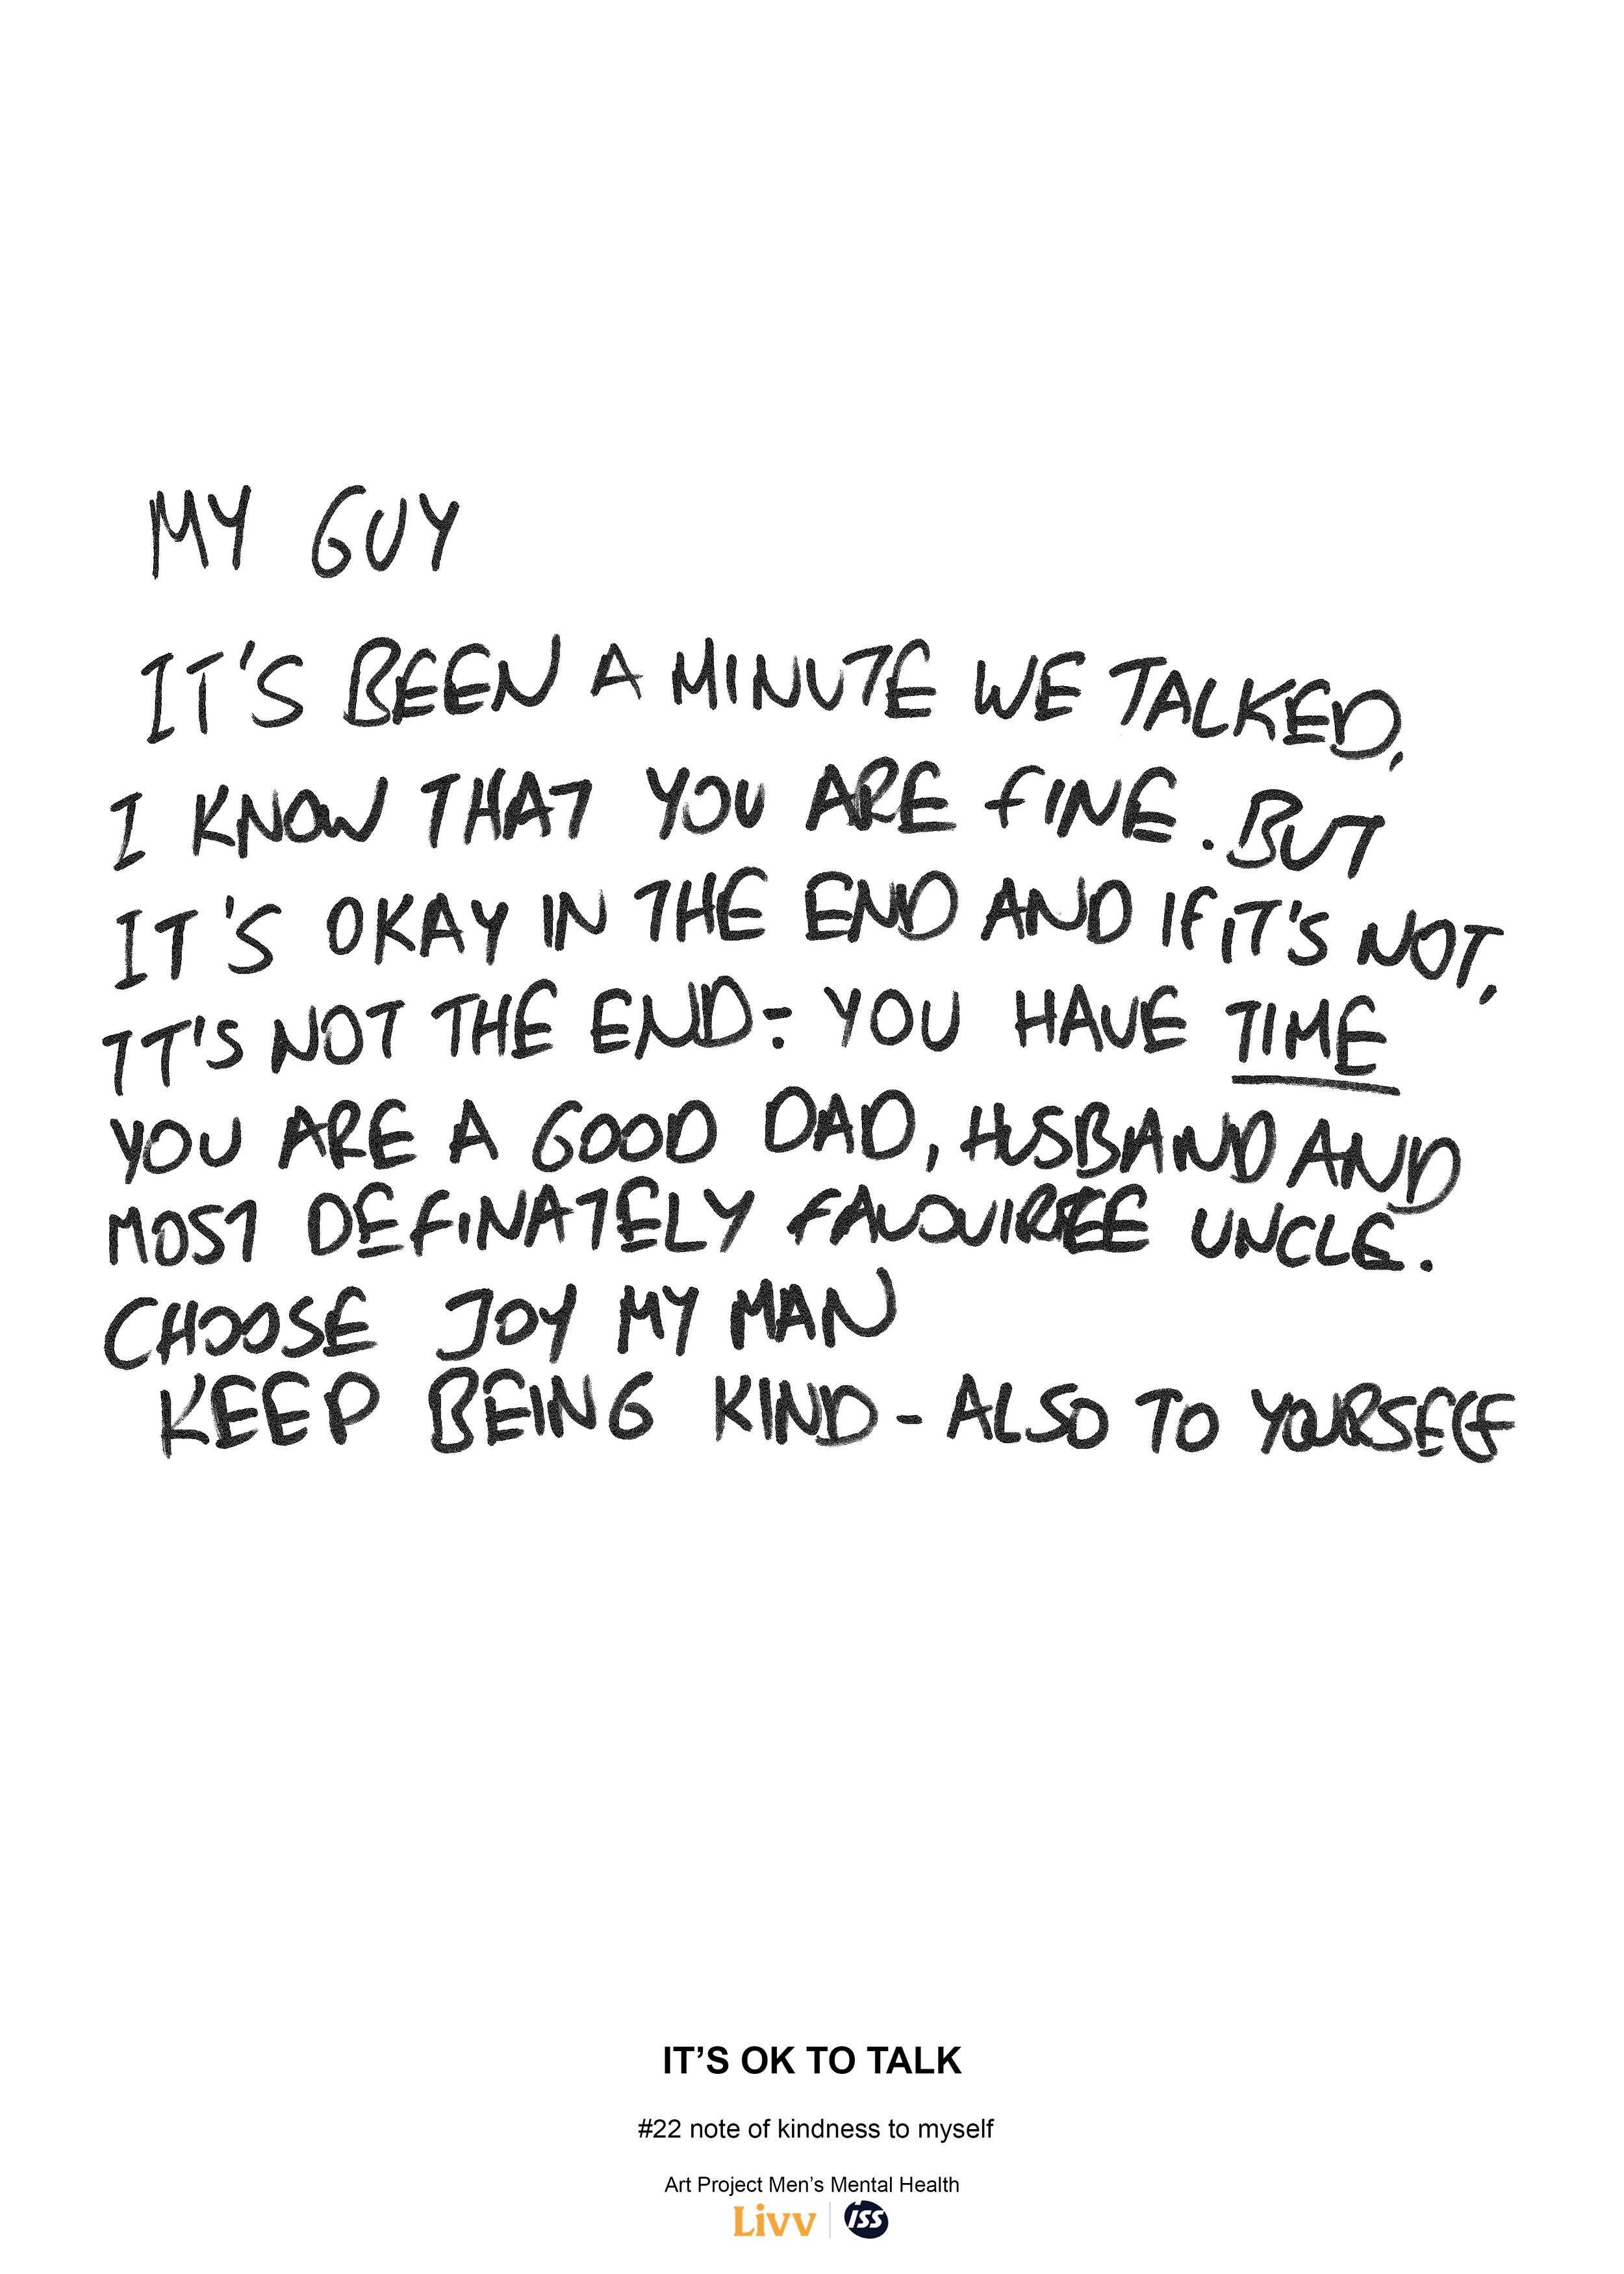 MY GUY
IT'S BEEN A MINUTE WE TALKED,
I KNOW THAT YOU ARE FINE. BUT
IT'S OKAY IN THE END AND IF IT'S NOT,
IT'S NOT THE END: YOU HAVE TIME
YOU ARE A GOOD DAD, HUSBAND AND
MOST DEFINATELY UNCLE.
CHOOSE JOY MY MAN
KEEP BEING KIND - ALSO TO YOURSELF
IT'S OK TO TALK
#22 note of kindness to myself
Art Project Men's Mental Health
Livv ISS